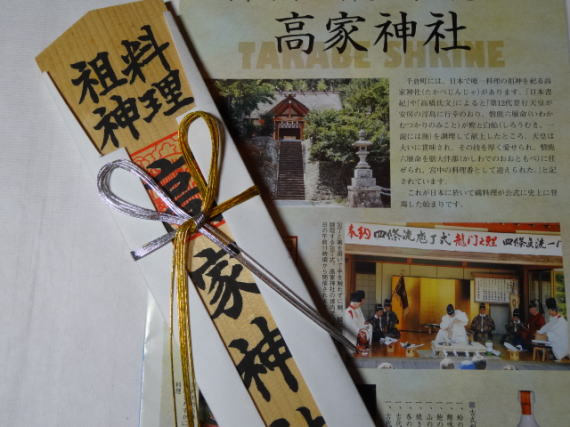 料理
祖神
高家神社
高家神社
TAKABE SHRINE
千倉町には、日本で唯一料理の祖神を祀る高
家神社(たかべじんじゃ)があります。「日本書
紀」や「高橋氏文」によると「第12代景行天皇が
安房の浮島に行幸のおり、磐鹿六雁命(いわか
むつかりのみこと)が鰹と白蛤(しろうむぎ、一
説には鮑)を調理して献上したところ、天皇は
大いに賞味され、その技を厚く愛せられ、磐鹿
六雁命を膳大伴部(かしわでのおおともべ)に任
ぜられ、宮中の料理番として迎えられた。」と記
されています。
これが日本に於いて鰹料理が公式に史上に登
場した始まりです。
奉納 四條流庖丁式 龍門之鯉 四條真流一門